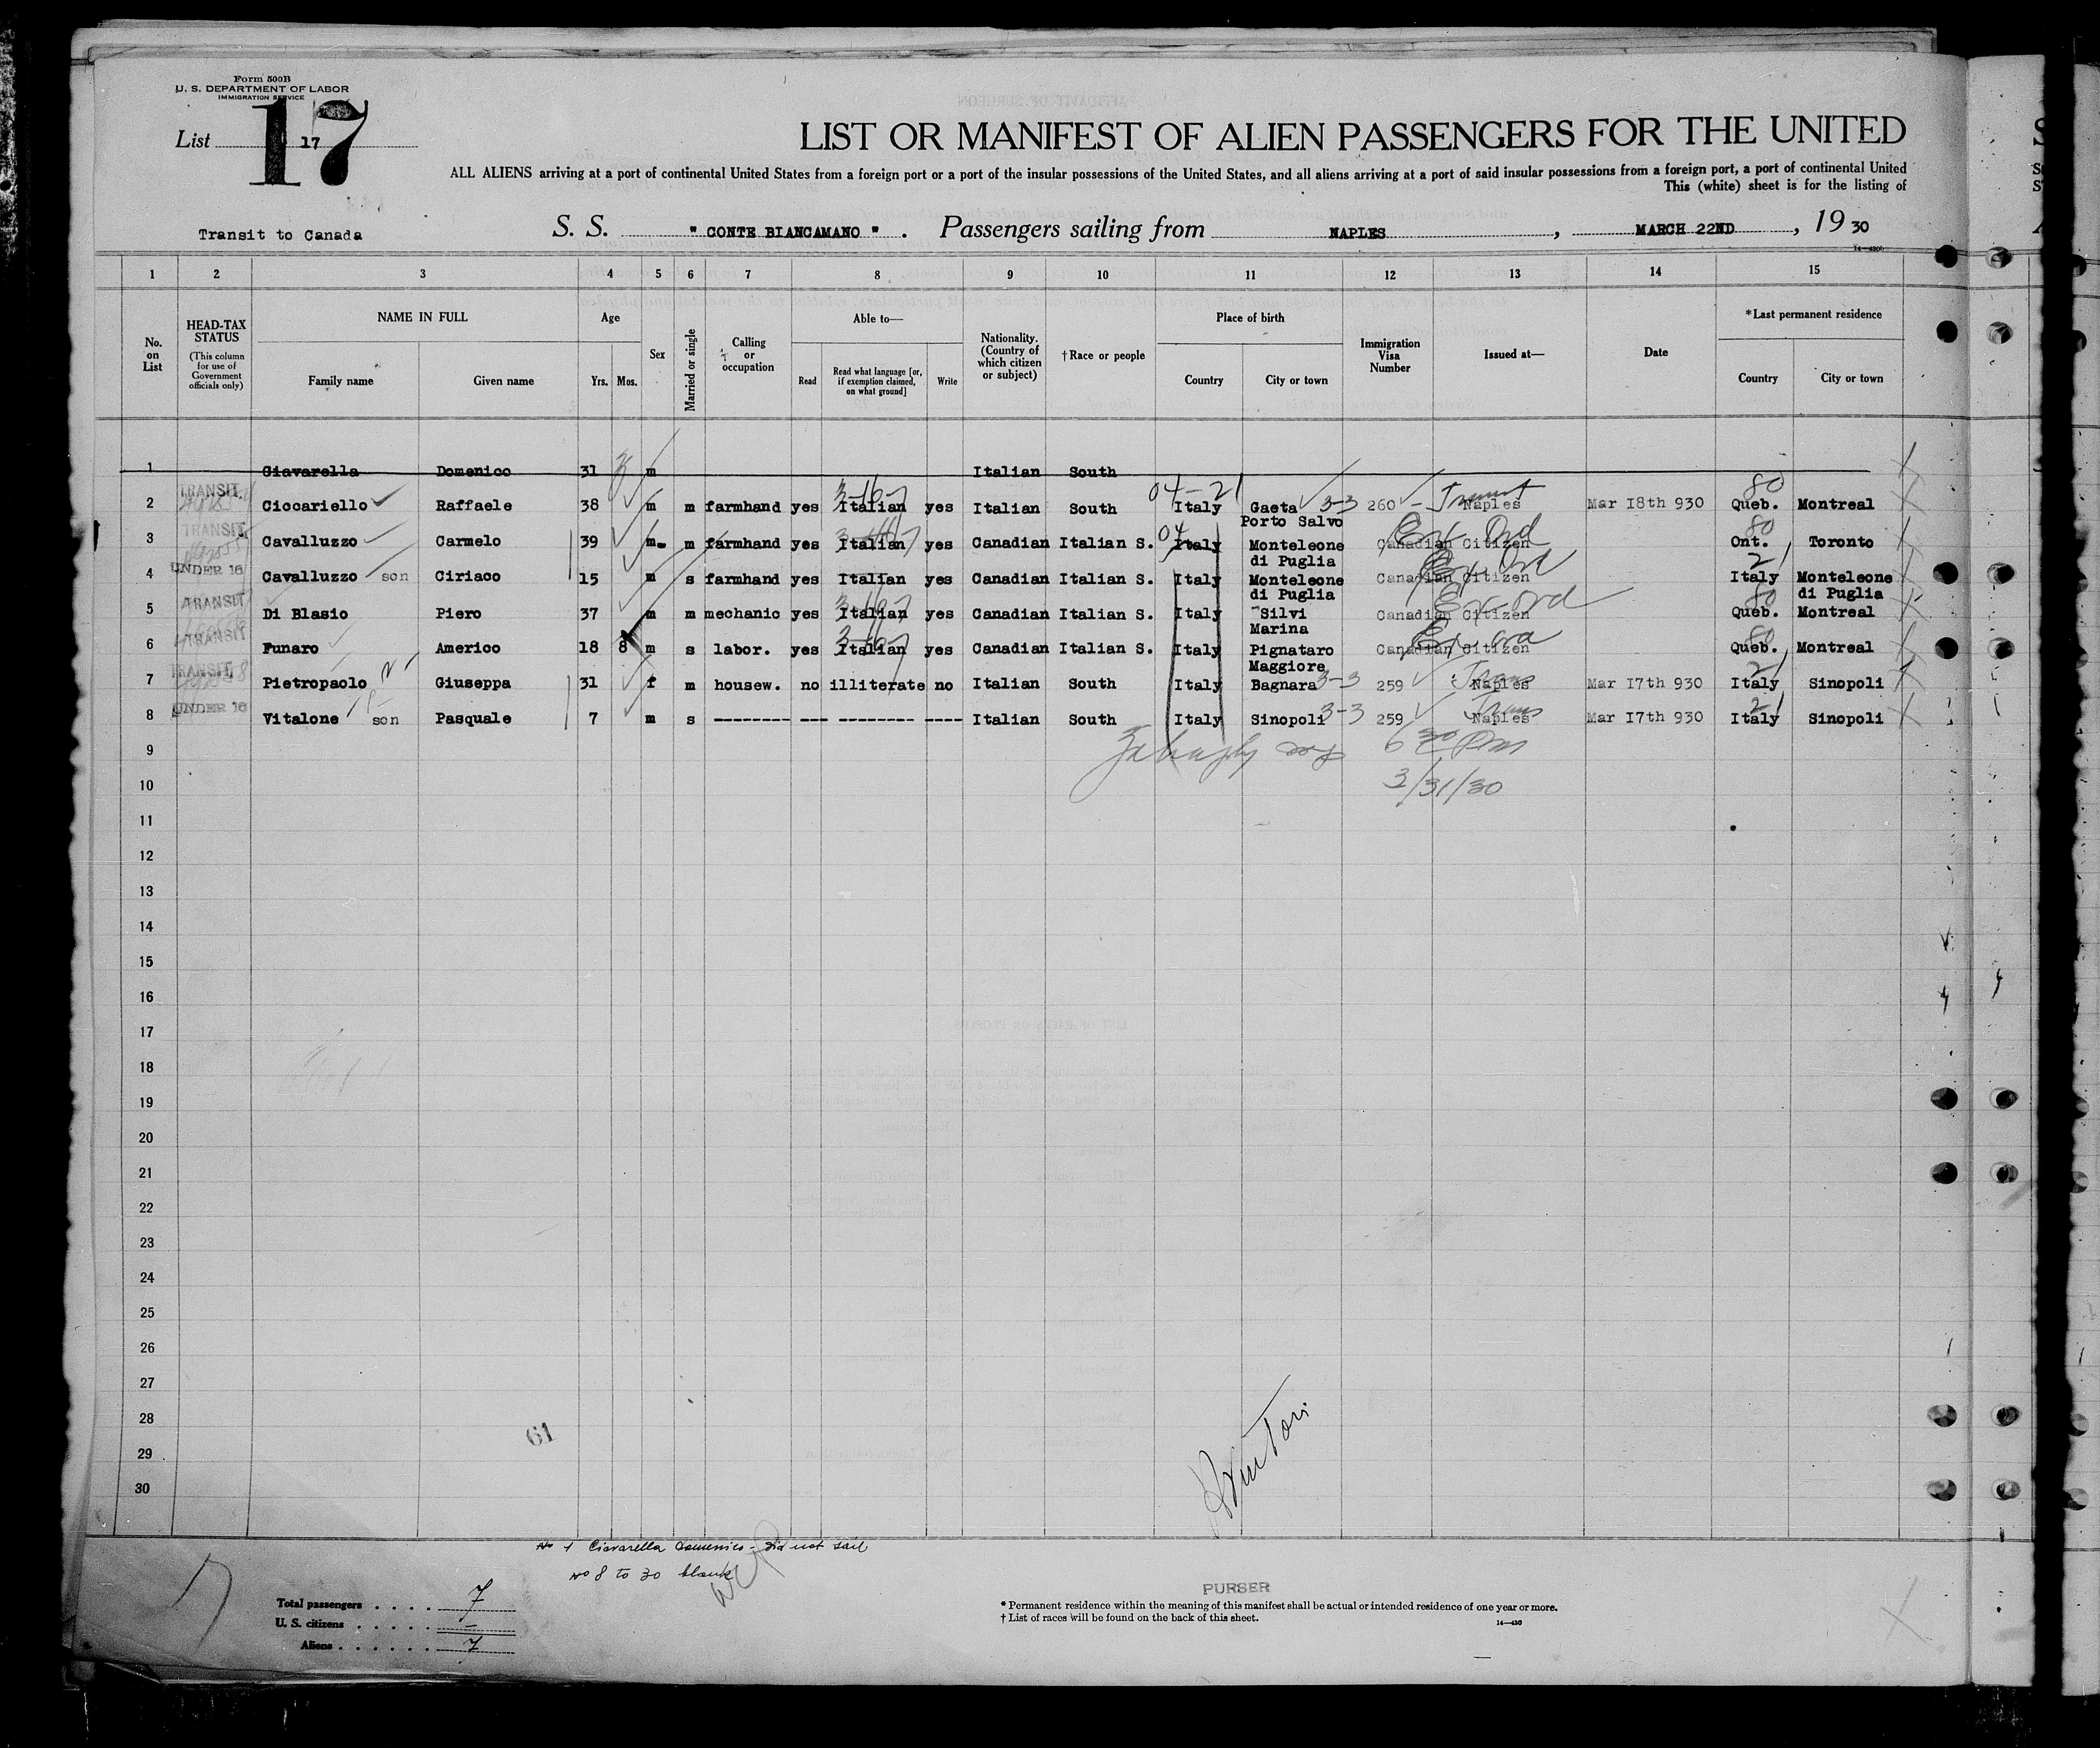 Form 500B
U. S. DEPARTMENT OF LABOR
IMMIGRATION SERVICE
List 17
17
LIST OR MANIFEST OF ALIEN PASSENGERS FOR THE UNITED
ALL ALIENS arriving at a port of continental United States from a foreign port or a port of the insular possessions of the United States, and all aliens arriving at a port of said insular possessions from a foreign port, a port of continental United
This (white) sheet is for the listing of
Transit to Canada S. S. " CONTE BIANCAMANO " . Passengers sailing from NAPLES , MARCH 22ND , 19 30
1 2 3 4 5 6 7 8 9 10 11 12 13 14 15
No. on List
HEAD-TAX STATUS (This column for use of Government officials only)
NAME IN FULL
Family name Given name
Age
Yrs. Mos.
Sex
Married or single
Calling or occupation
Able to—
Read
Read what language [or, if exemption claimed, on what ground]
Write
Nationality. (Country of which citizen or subject)
†Race or people
Place of birth
Country City or town
Immigration Visa Number
Issued at—
Date
*Last permanent residence
Country City or town
1 Ciavarella Domenico 31 m Italian South
04-21
2 TRANSIT. Ciccariello Raffaele 38 m m farmhand yes Italian yes Italian South Italy Gaeta 3-3 260 - Transit Naples Mar 18th 930 80 Queb. Montreal
Porto Salvo
3 TRANSIT Cavalluzzo Carmelo 39 m m farmhand yes Italian yes Canadian Italian S. 04 Italy Monteleone Canadian Citizen Ex Ord 80 Ont. Toronto
di Puglia
4 UNDER 16 Cavalluzzo son Ciriaco 15 m s farmhand yes Italian yes Canadian Italian S. Italy Monteleone Canadian Citizen Ex Ord 21 Italy Monteleone
di Puglia di Puglia
5 TRANSIT Di Blasio Piero 37 m m mechanic yes Italian yes Canadian Italian S. Italy Silvi Canadian Citizen Ex Ord 80 Queb. Montreal
Marina
6 TRANSIT Funaro Americo 18 8 m s labor. yes Italian yes Canadian Italian S. Italy Pignataro Canadian Citizen Ex Ord 80 Queb. Montreal
Maggiore
7 TRANSIT. Pietropaolo Giuseppa 31 f m housew. no illiterate no Italian South Italy Bagnara 3-3 259 Trans Naples Mar 17th 930 21 Italy Sinopoli
8 UNDER 16 Vitalone son Pasquale 7 m s -------- --- -------- ---- Italian South Italy Sinopoli 3-3 259 Trans Naples Mar 17th 930 21 Italy Sinopoli
9 6 30 Pm
10 3/31/30
11
12
13
14
15
16
17
18
19
20
21
22
23
24
25
26
27
28
61
29
30
No 1 Ciavarella Domenico - Did not sail
No 8 to 30 blank
PURSER
Total passengers . . . . 7
U. S. citizens . . . . . -
Aliens . . . . . . 7
* Permanent residence within the meaning of this manifest shall be actual or intended residence of one year or more.
† List of races will be found on the back of this sheet.
14—430